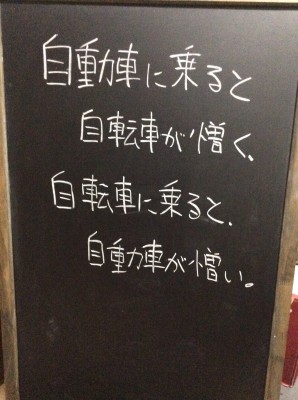 自動車に乗ると
自転車が憎く、
自転車に乗ると、
自動車が憎い。